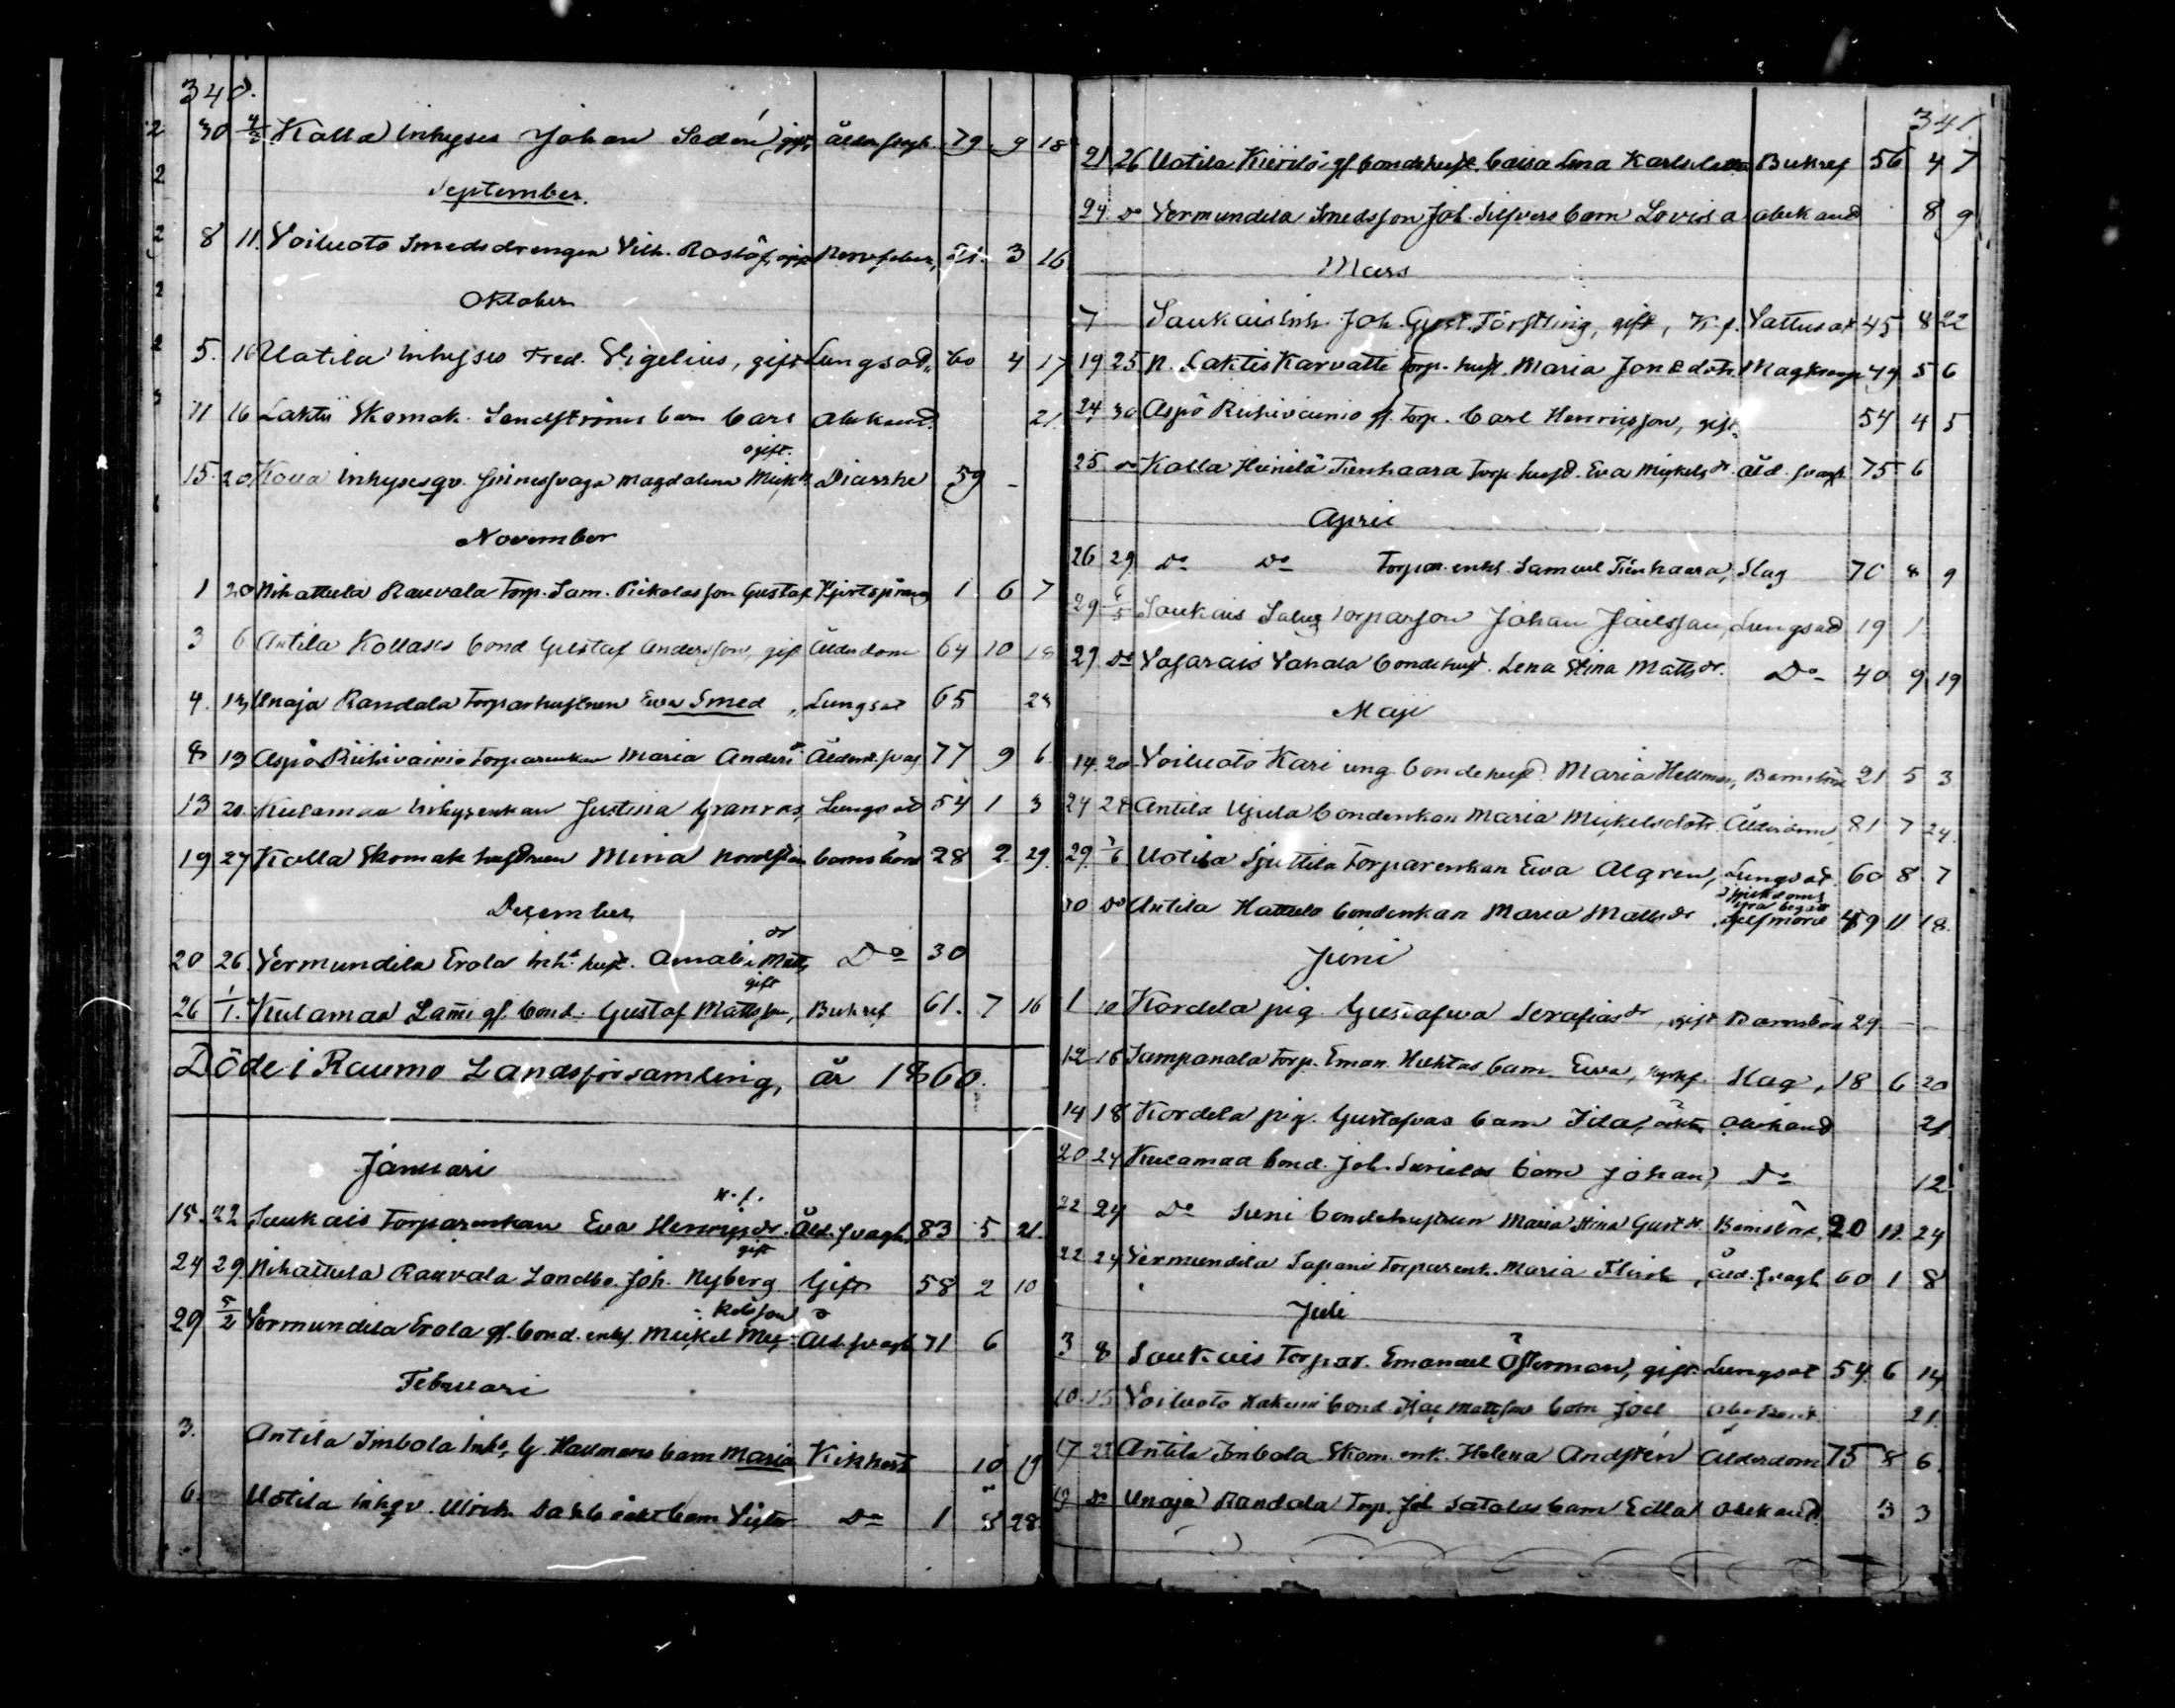 340.
30 4/2 Kolla Inhyses Johan Sedén, gift, ålder.svagh. 79 9 18
September.
8 11. Voiluoto Smedsdrengen Vilh. Roslöf, Nervfeber, 3 16
Oktober
5. 16 Uotila Inhyses Fred. Vigelius, gift Lungsot, 60 4 17
11 16 Laktis Skomak. Sandströms barn Carl obekand 21
ogift.
15. 20. Kolla Inhysesqv. sinnessvaga Magdalena Mick.dr Diarrhe 59 -
November
1 20 Nihattula Rauvala Torp. Sam. Pickalasson Gustaf Hjertsprång 1 6 7
3 6 Antila Kollases bond Gustaf Andersson, gift Ålderdom 64 10 18
4. 13 Unaja Randala Torparhustrun Eva Smed, Lungsot 65 23
8 13 Aspö Riihivainio Torparenkan Maria Anders dr Ålderd.svag 77 9 6
13 20. Kulamaa Inhysenkan Justina Granros, Lungsot 54 1 3
19 27 Kolla Skomak hustrun Mina Nordsten barnsbörd 28 2 29.
December
20 26. Vermundila Erola Inh. hust. Amalia Matts dr Do 30
gift
26 1/1. Kulamaa Lami gf. bond. Gustaf Mattsson, Bukref 61. 7 16
Döde i Raumo Landsförsamling, år 1860.
Januari
k.f.
15. 22. Saukais Torparenkan Eva Henricsdr. Åld.svagh. 83 5 21.
gift
24 29. Nihattula Rauvala Landbo. Joh. Nyberg Gift 58 2 10
kelsson
29 5/2 Vermundila Erola gf. bond. enkl. Mickel Mic- Åld.svagh 71 6
Februari
3. Antila Imbola Inhs. G. Hallmans barn Maria Kikhost 10 19
6. Uotila Inhqv. Ulrik. Dahlb oäkt barn Victor Do 1 8 28.
341.
21 26 Uotila Kierilä gf. bondehust. Caisa Lena Karlsdotter Bukref 56 4 7
24. Do Vermundila Smedsson Joh. Silfvers barn Lovisa obekand 8 9
Mars
7 Saukais Inh. Joh. Gust. Törstling, gift, K.f. Vattusot 45 8 22
19 25 N. Laktis Karvatti Torp. hust. Maria Jonsdotr. Magkramp 44 5 6
24 30 Aspö Riihivainio gf. Torp. Carl Henricsson, gift, 54 4 5
25. Do Kolla Heinilä Tienhaara Torp hustr. Eva Mickelsdr. åld. svagh. 75 6
April
26 29 Do Do Torpar. enkl. Samuel Tienhaara, Slag 70 8 9
29 6/5 Saukais Torparson Johan Joelsson, Lungsot 19 1
29 Do Vasarais Vahala bondehust. Lena Stina Matts dr. Do 40 9 19
Maji
14. 20 Voiluoto Kari ung. bondehust. Maria Hellman, Barnsbörd 21 5 3
24 28 Antila Ujula bondenkan Maria Mickelsdotr. Ålderdom, 81 7 24.
29. 1/6 Uotila Sjuttila Torparenkan Eva Algren, Lungsot 60 8 7
30 Do Antila Hattula bondenkan Maria Matts dr sjelfmord 49 11 18.
Juni
1 10 Kordela pig. Gustafva Serafias dr, ogift Barnsbörd 29 - -
12 16 Sampanala Torp. Eman. Huhtas barn Eva, Slag, 18 6 20
14 18 Kordela pig. Gustafvas barn Ida, oäkta obekand 21.
20 24 Kulamaa bond. Joh. Surulas barn Johan, Do 12
22 24 Do Suni bondehustrun Maria Stina Gust dr. Barnsbörd, 20 11 24
22 24 Vermundila Sapani Torparenk. Maria Flink, Åld. svagh 60 1 8
Juli
3 8 Saukais Torpar. Emanuel Österman, gift. Lungsot 54. 6 14
10. 15 Voiluoto Hakuni bond. Isac Mattsson barn Joel obekand 21.
17 22 Antila Imbola Skom. enk. Helena Andstén Ålderdom 75 8 6.
19 Do Unaja Randala Torp. Joh Satalas barn Edla obekand 3 3